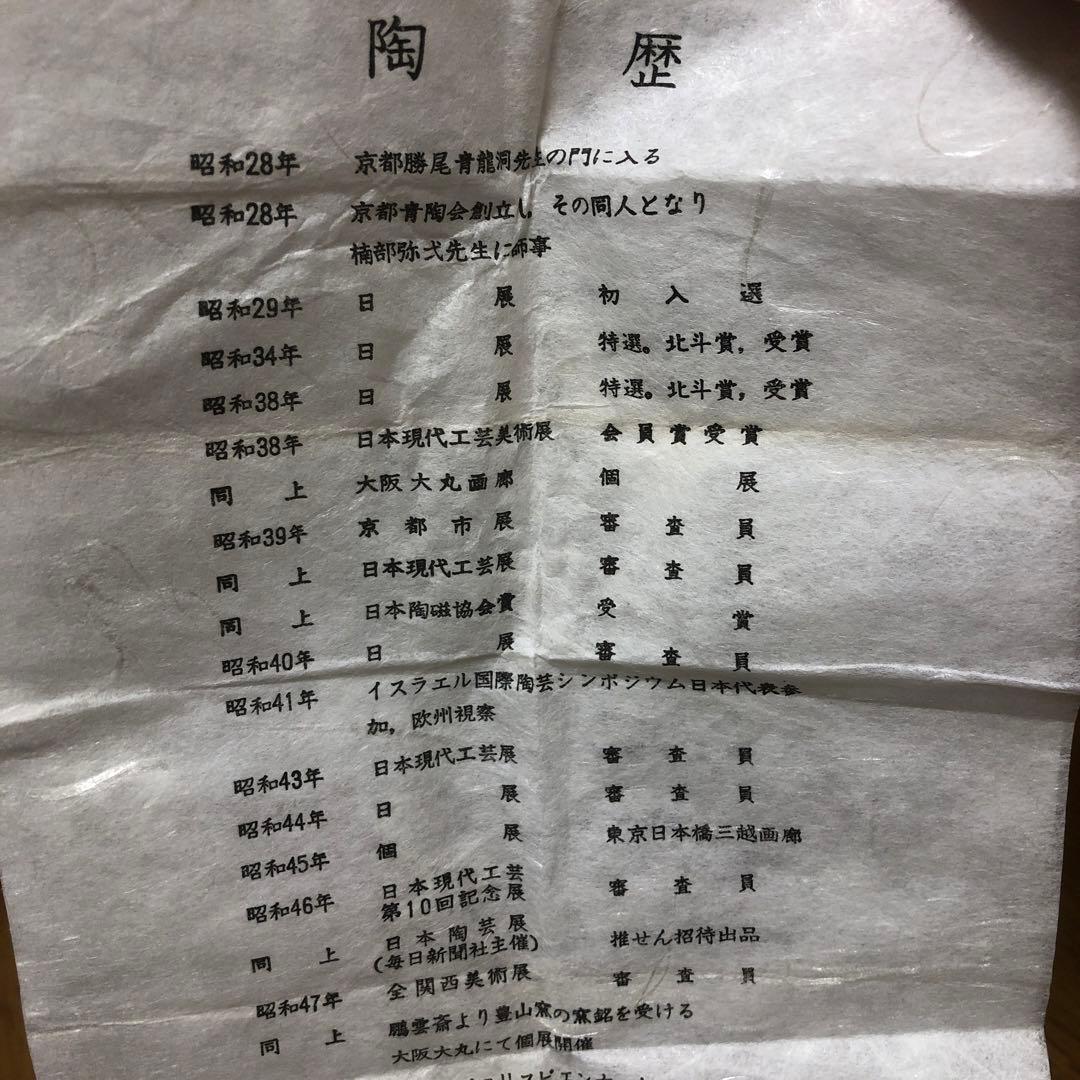 陶歴
昭和28年 京都勝尾青龍洞先生の門に入る
昭和28年 京都青陶会創立し，その同人となり
楠部弥弌先生に師事
昭和29年 日展 初入選
昭和34年 日展 特選。北斗賞，受賞
昭和38年 日展 特選。北斗賞，受賞
昭和38年 日本現代工芸美術展 会員賞受賞
同上 大阪大丸画廊 個展
昭和39年 京都市展 審査員
同上 日本現代工芸展 審査員
同上 日本陶磁協会賞 受賞
昭和40年 日展 審査員
昭和41年 イスラエル国際陶芸シンポジウム日本代表参
加，欧州視察
昭和43年 日本現代工芸展 審査員
昭和44年 日展 審査員
昭和45年 個展 東京日本橋三越画廊
昭和46年 日本現代工芸
第10回記念展 審査員
同上 日本陶芸展
(毎日新聞社主催) 推せん招待出品
昭和47年 全関西美術展 審査員
同上 鵬雲斎より豊山窯の窯銘を受ける
大阪大丸にて個展開催